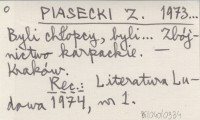 PIASECKI Z. 1973...
Byli chłopcy, byli... Zbój-
nictwo karpackie. —
Kraków.
Rec.: Literatura Lu-
dowa 1974, nr 1.